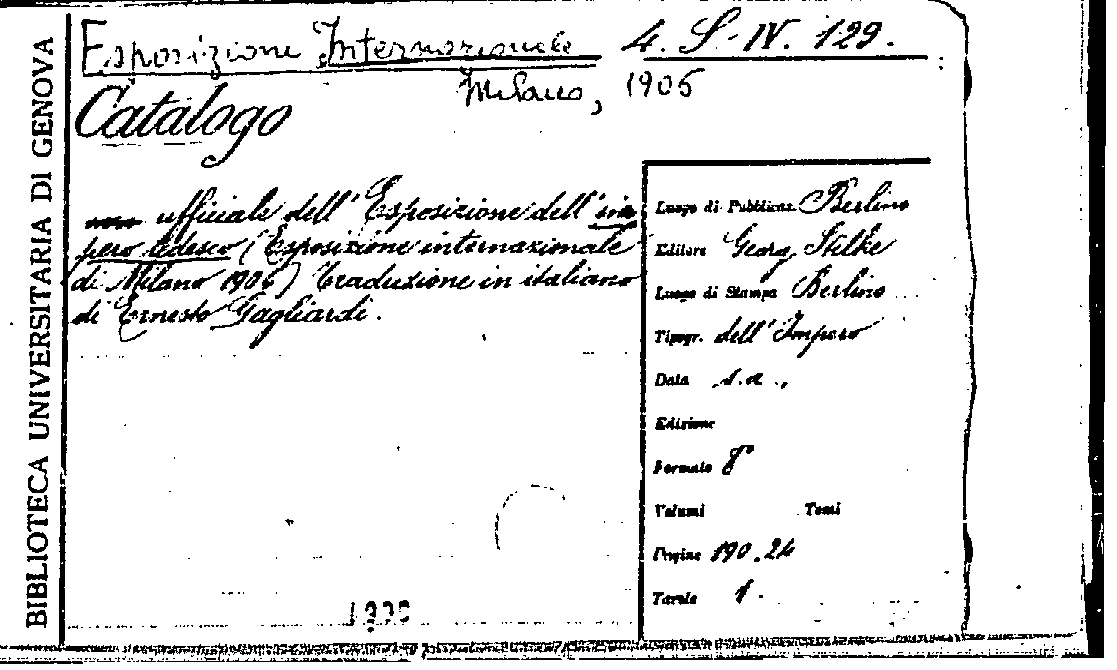 BIBLIOTECA UNIVERSITARIA DI GENOVA
Esposizione Internazionale 4. S. IV. 129.
Milano, 1906
Catalogo
ufficiale dell' Esposizione dell' im
pero tedesco (Esposizione internazionale
di Milano 1906) Traduzione in italiano
di Ernesto Gagliardi.
Luogo di Pubblicaz. Berlino
Editore Georg Stilke
Luogo di Stampa Berlino
Tipogr. dell' Impero
Data s.a.,
Edizione
Formato 8°
Volumi Tomi
Pagine 190.24
Tavole 1.